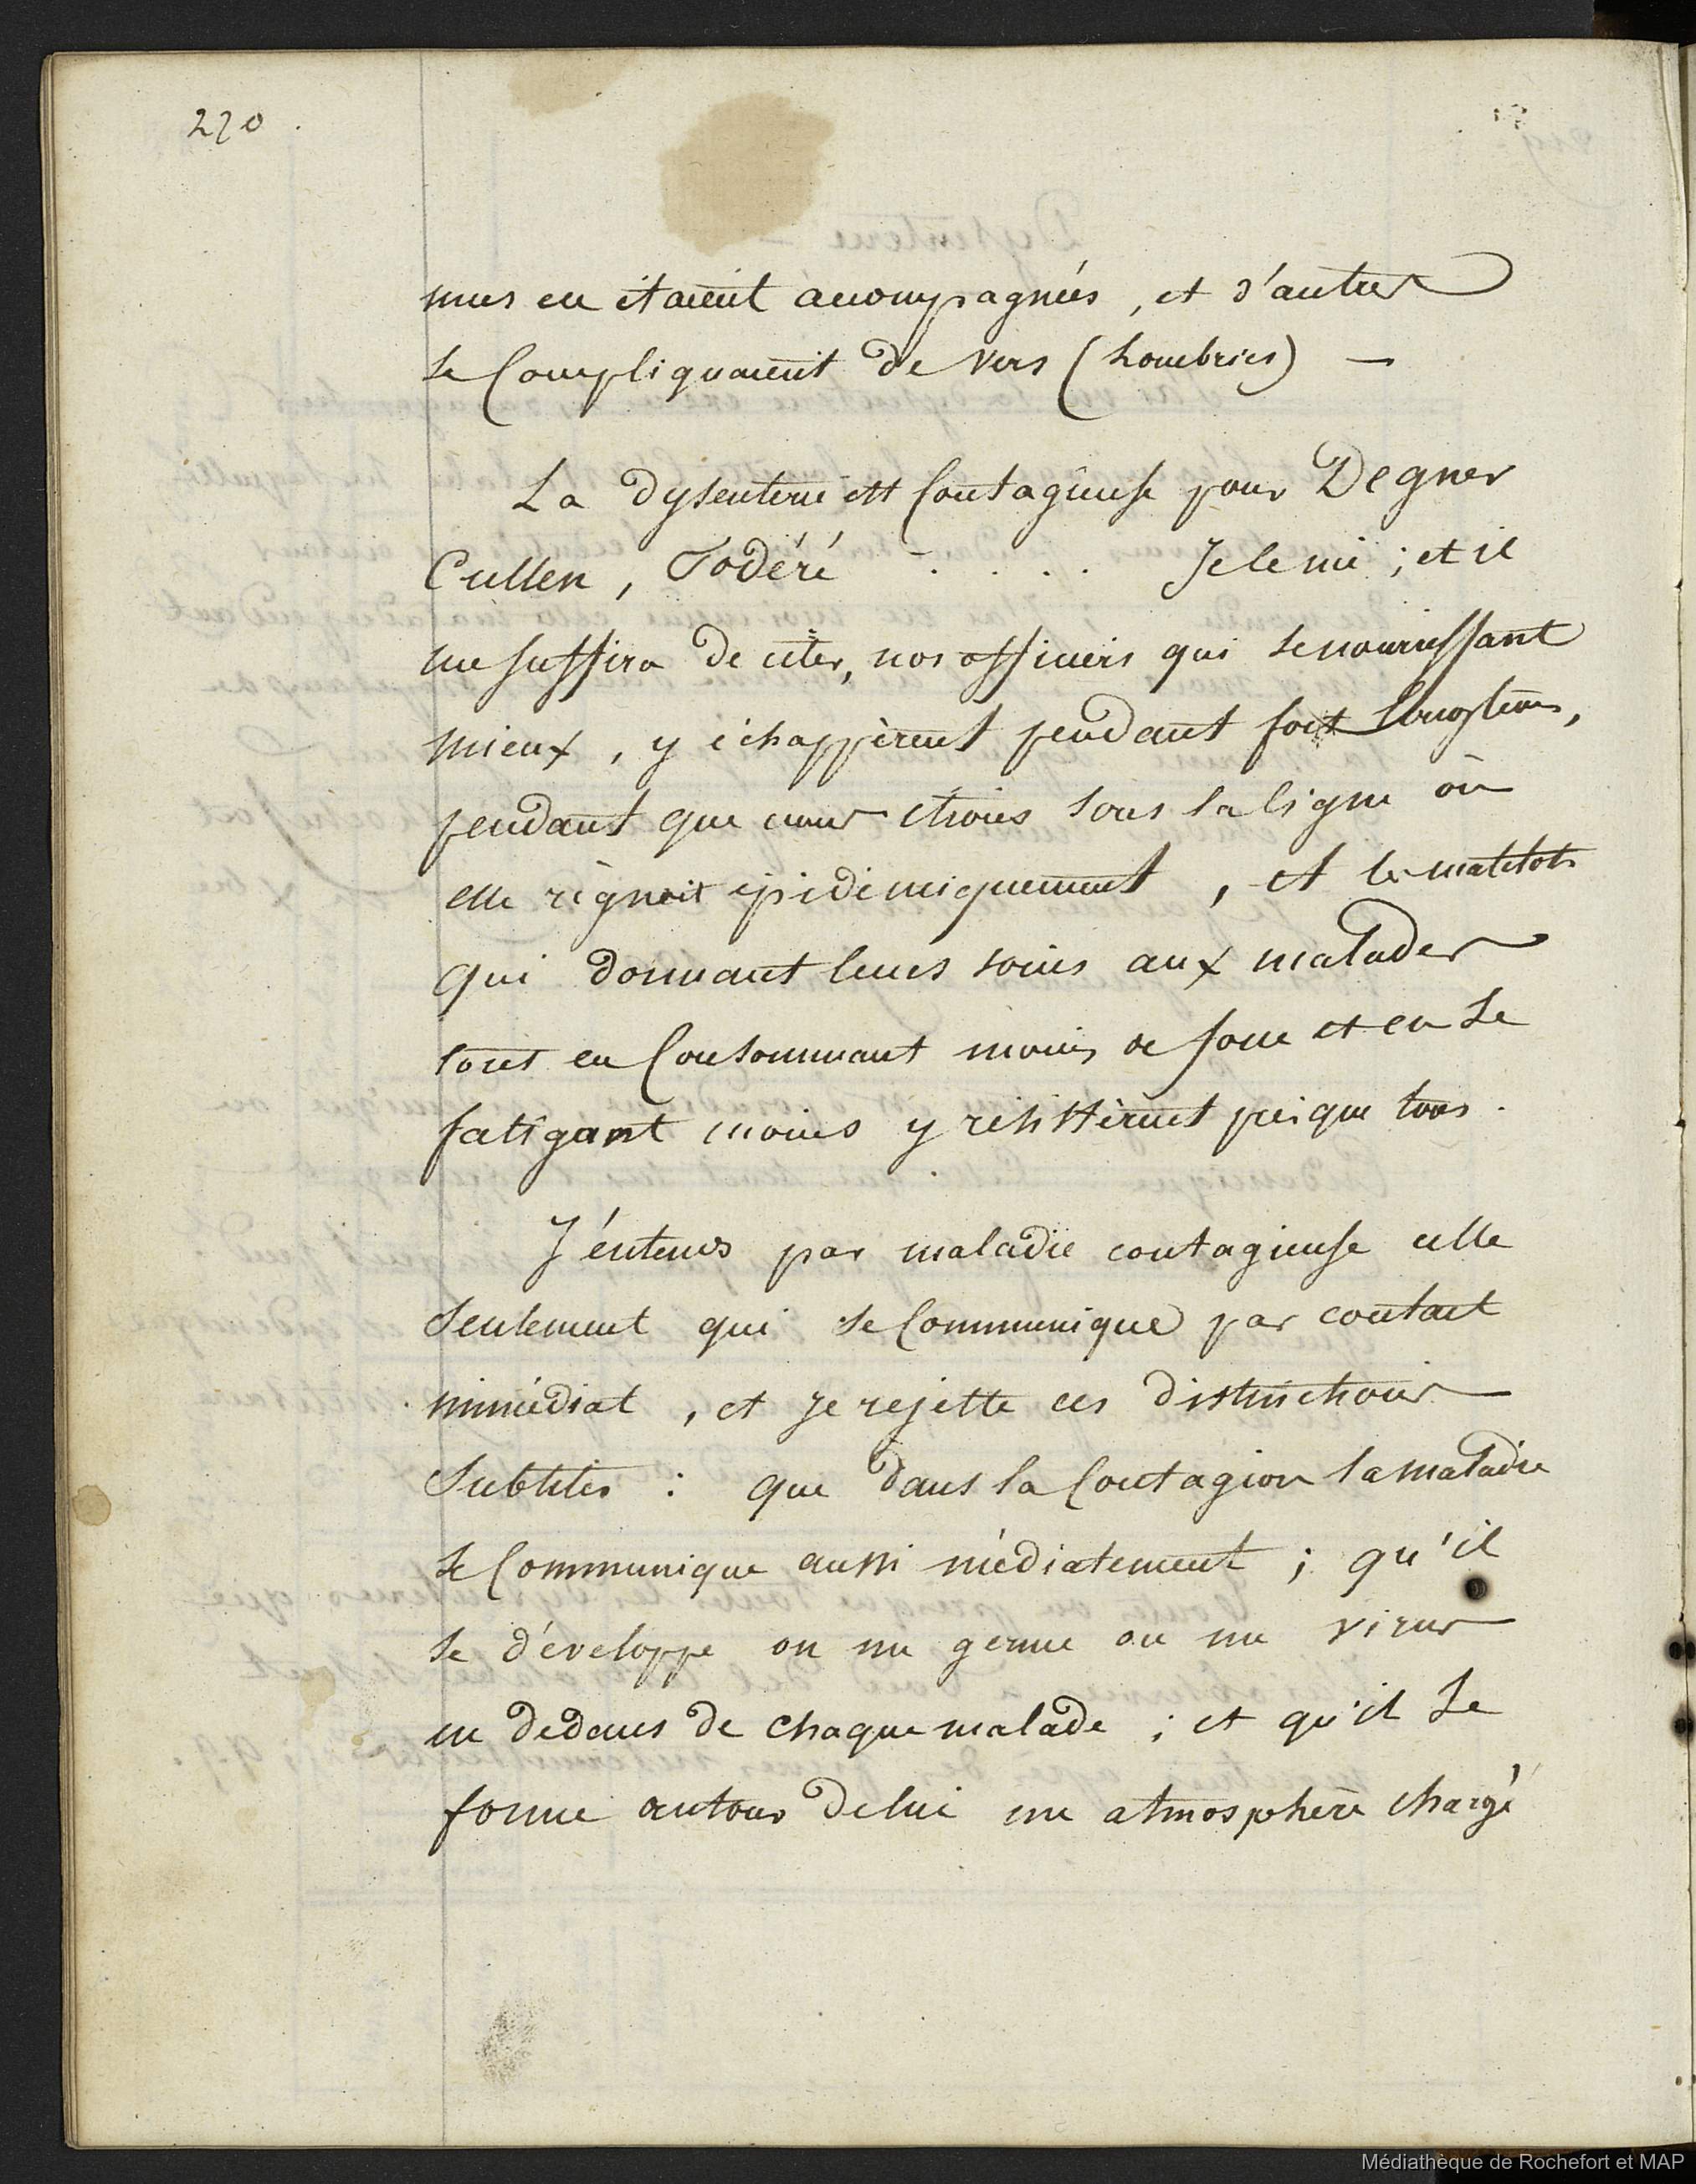 270.
unes en étaient accompagnées, et d'autres
se Compliquaient de vers (Lombrics) —
La dysenterie est Contagieuse pour Degner
Cullen, Fodéré . . . . Je le nie ; et il
me suffira de citer, nos officiers qui se nourrissant
mieux, y échappèrent pendant fort longtems,
pendant que nous étions sous la ligne où
elle règnoit épidémiquement, et les matelots
qui donnant leurs soins aux malades
tout en Consommant moins de force et en se
fatigant moins y résistèrent presque tous.
J'entens par maladie contagieuse celle
Seulement qui se Communique par contact
immédiat, et Je rejette ces distinctions
Subtiles : que dans la Contagion la maladie
se Communique aussi médiatement ; qu'il
se développe ou un germe ou un virus
en dedans de chaque malade ; et qu'il se
forme autour de lui une atmosphère chargé
Médiathèque de Rochefort et MAP